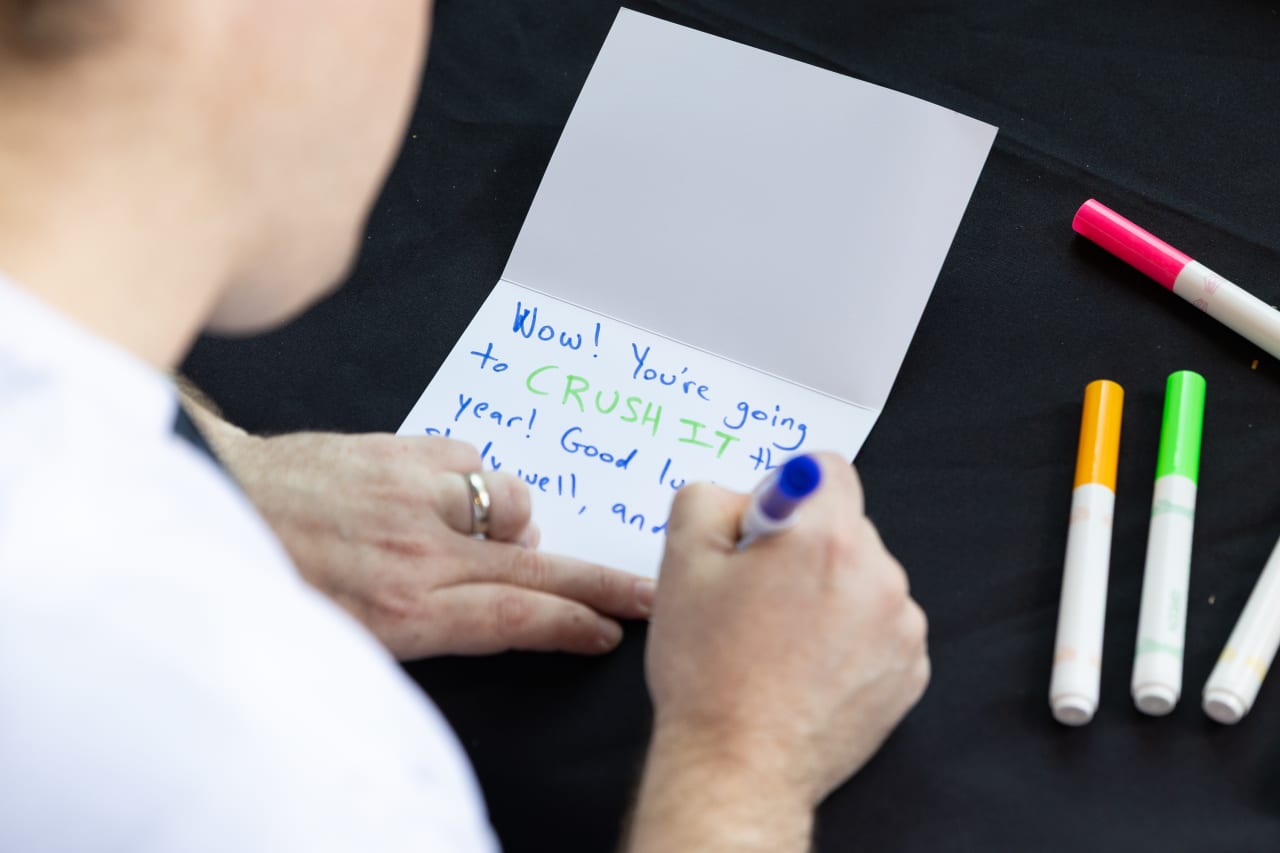 Wow! You're going
to CRUSH IT
year! Good
well, and